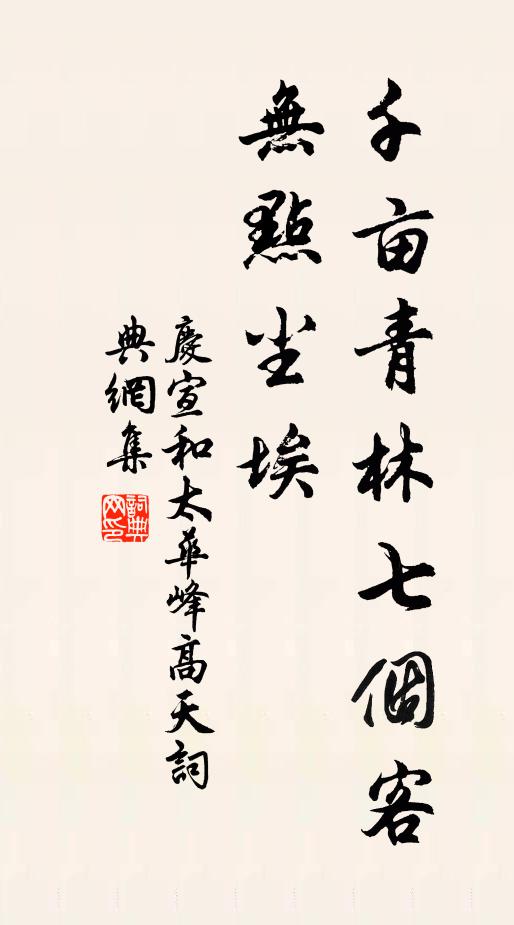 千亩青林七個客
無點尘埃
慶宣和太華峰高天詞
典網集
詞典网印